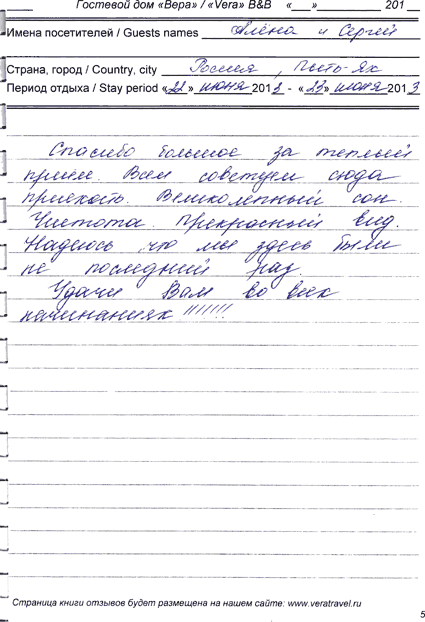 Гостевой дом «Вера» / «Vera» B&B «___»____________ 201___
Имена посетителей / Guests names Алёна и Сергей
Страна, город / Country, city Россия, Пыть-Ях
Период отдыха / Stay period «22» июня 2013 - «23» июня 2013
Спасибо большое за теплый
прием. Всем советуем сюда
приехать. Великолепный сон.
Чистота. Прекрасный вид.
Надеюсь что мы здесь были
не последний раз.
Удачи Вам во всех
начинаниях !!!!!!!
Страница книги отзывов будет размещена на нашем сайте: www.veratravel.ru
5